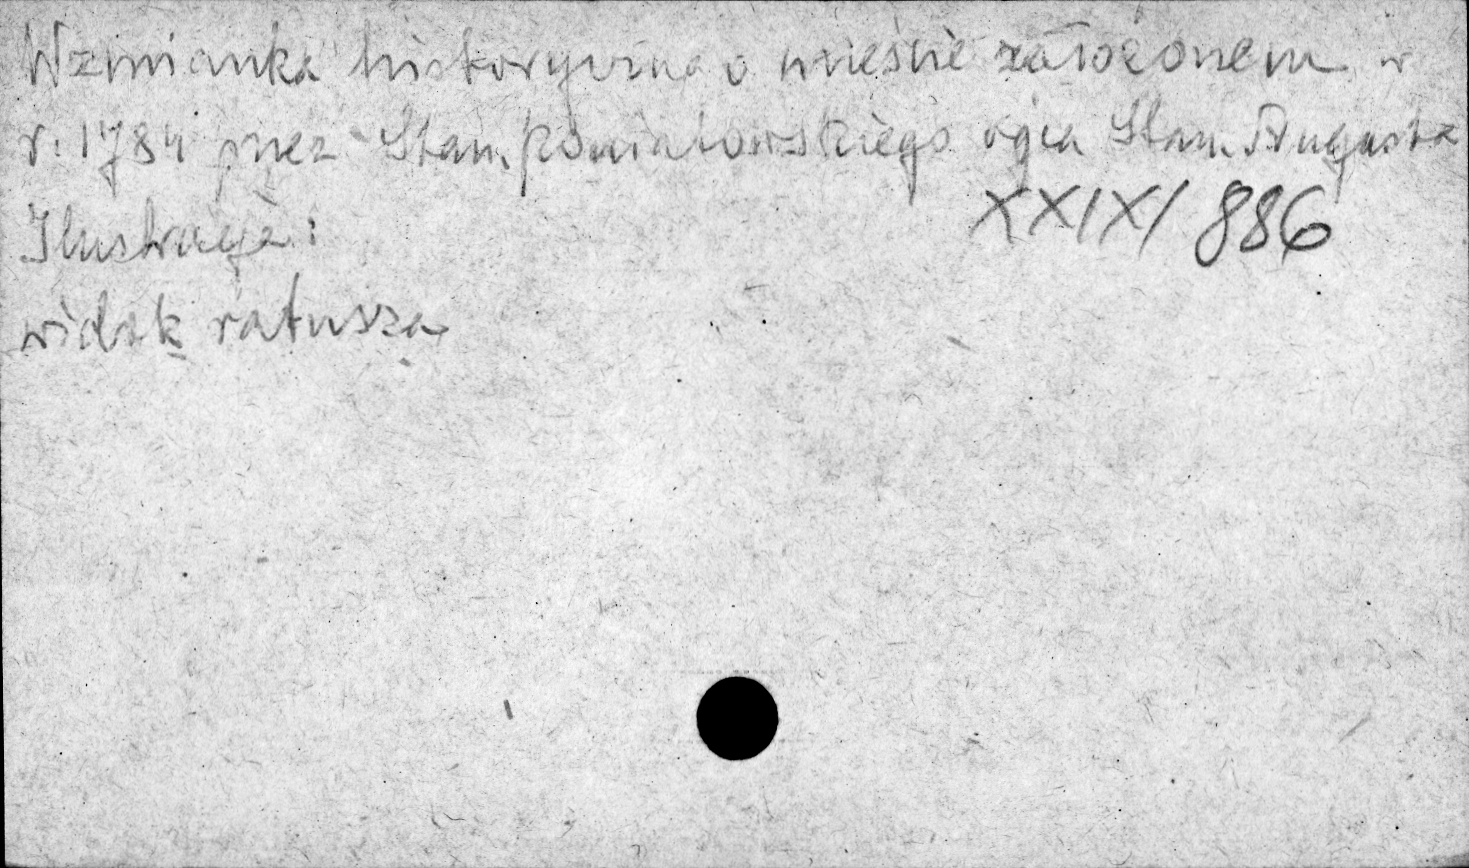 Wzmianka historyczna o mieście założonem w
r. 1784 przez Stan. Poniatowskiego ojca Stan. Augusta
XXIX/886
Ilustracja:
widok ratusza